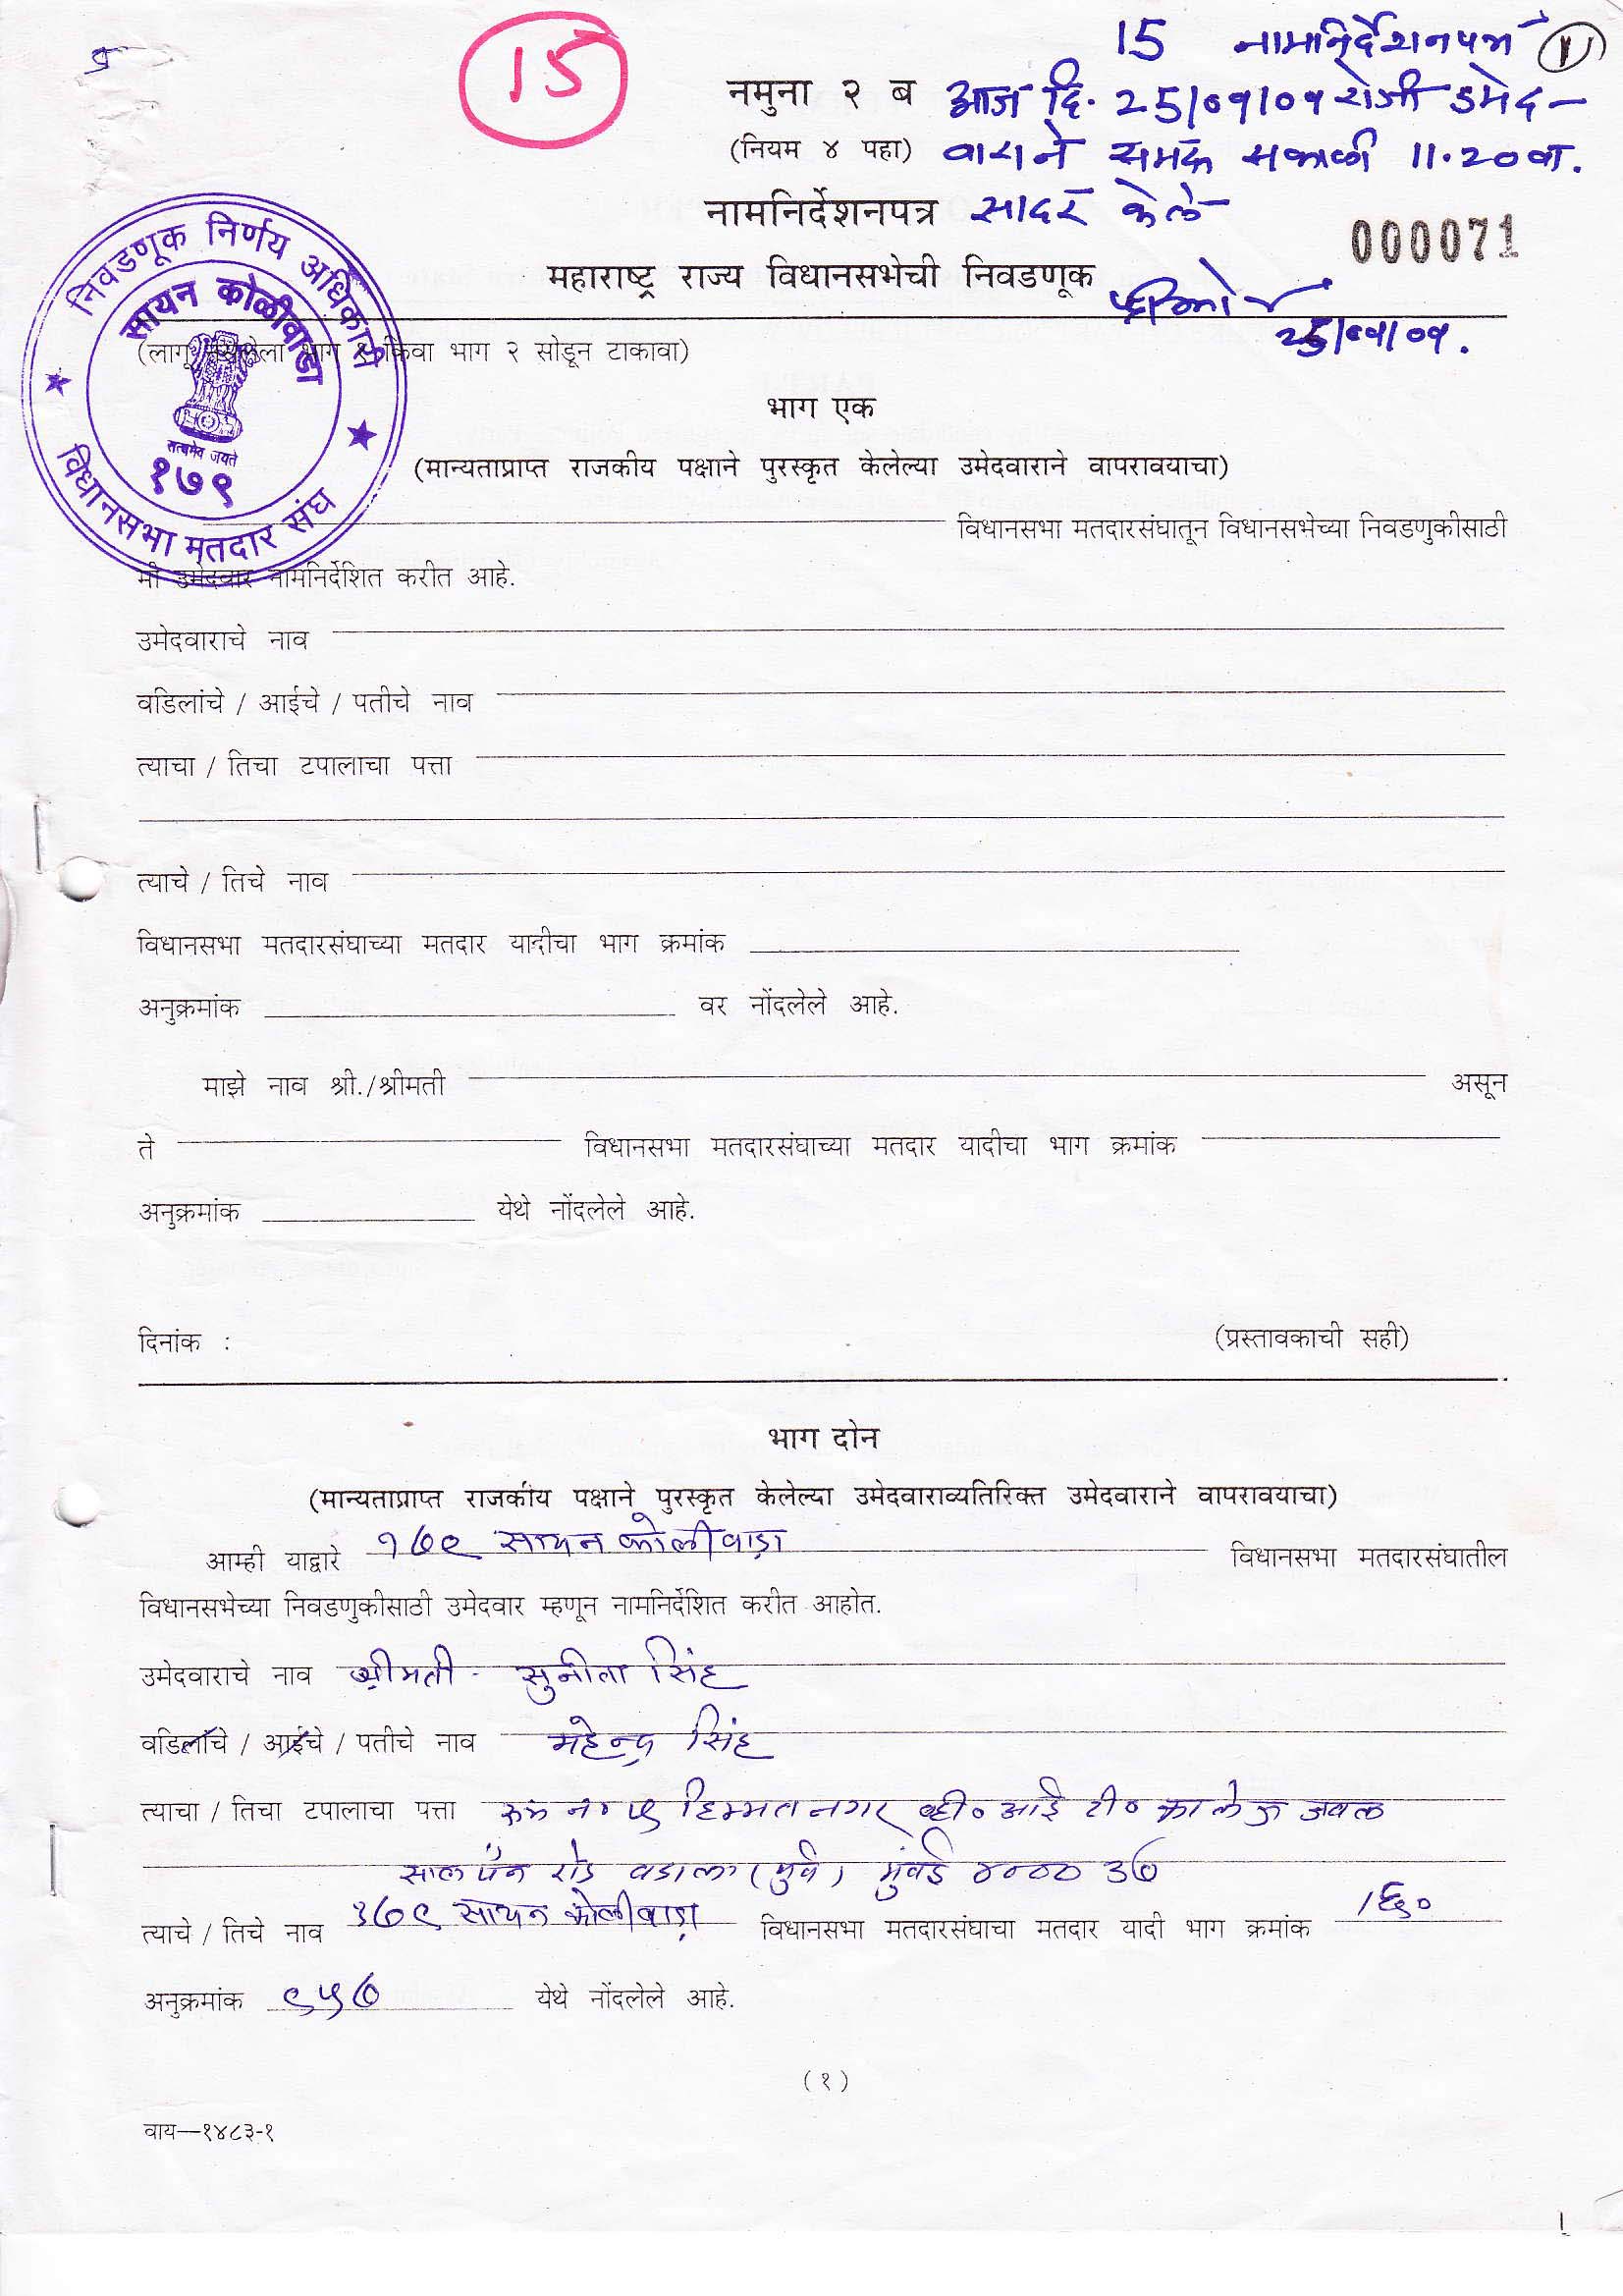 15
15 नामनिर्देशनपत्र
नमुना २ ब आज दि. 25/०९/०९ रोजी उमेद-
(नियम ४ पहा) वाराने समक्ष सकाळी 11.20 वा.
नामनिर्देशनपत्र सादर केले
000071
महाराष्ट्र राज्य विधानसभेची निवडणूक
25/०९/०९.
निवडणूक निर्णय अधिकारी
सायन कोळीवाडा
सत्यमेव जयते
१७९
विधानसभा मतदार संघ
(लागू नसलेला भाग १ किंवा भाग २ सोडून टाकावा)
भाग एक
(मान्यताप्राप्त राजकीय पक्षाने पुरस्कृत केलेल्या उमेदवाराने वापरावयाचा)
विधानसभा मतदारसंघातून विधानसभेच्या निवडणुकीसाठी
मी उमेदवार नामनिर्देशित करीत आहे.
उमेदवाराचे नाव
वडिलांचे / आईचे / पतीचे नाव
त्याचा / तिचा टपालाचा पत्ता
त्याचे / तिचे नाव
विधानसभा मतदारसंघाच्या मतदार यादीचा भाग क्रमांक
अनुक्रमांक वर नोंदलेले आहे.
माझे नाव श्री./श्रीमती असून
ते विधानसभा मतदारसंघाच्या मतदार यादीचा भाग क्रमांक
अनुक्रमांक येथे नोंदलेले आहे.
दिनांक : (प्रस्तावकाची सही)
भाग दोन
(मान्यताप्राप्त राजकीय पक्षाने पुरस्कृत केलेल्या उमेदवाराव्यतिरिक्त उमेदवाराने वापरावयाचा)
आम्ही याद्वारे १७९ सायन कोलीवाड़ा विधानसभा मतदारसंघातील
विधानसभेच्या निवडणुकीसाठी उमेदवार म्हणून नामनिर्देशित करीत आहोत.
उमेदवाराचे नाव श्रीमती सुनीता सिंह
वडिलांचे / आईचे / पतीचे नाव महेन्द्र सिंह
त्याचा / तिचा टपालाचा पत्ता रूम न० ५ हिम्मत नगर व्ही० आई टी० कालेज जवल
सालपॅन रोड वडाला (पुर्व) मुंबई ४०००३७
त्याचे / तिचे नाव १७९ सायन कोलीवाड़ा विधानसभा मतदारसंघाचा मतदार यादी भाग क्रमांक १६०
अनुक्रमांक ९५७ येथे नोंदलेले आहे.
(१)
वाय—१४८३-१